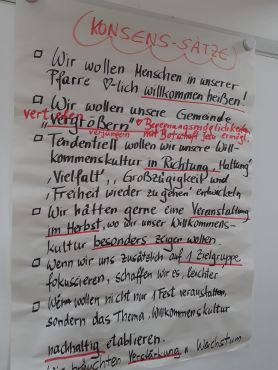 KONSENS-SÄTZE
Wir wollen Menschen in unserer
Pfarre ♡-lich willkommen heißen!
Wir wollen unsere Gemeinde
vertiefen
"vergrößern" Begegnungsmöglichkeiten
verjüngern mit Botschaft Jesu
Tendentiell wollen wir unsere Will-
kommenskultur in Richtung, Haltung
'Vielfalt', Großzügigkeit und
'Freiheit wieder zu gehen' entwickeln
Wir hätten gerne eine Veranstaltung
im Herbst, wo wir unser Willkommens-
kultur besonders zeigen wollen.
Wenn wir uns zusätzlich auf 1 Zielgruppe
fokussieren, schaffen wir es leichter
wollen nicht nur 1 Fest veranstalten,
sondern das Thema, Willkommenskultur
nachhaltig etablieren.
Wir bräuchten Verstärkung u. Wachstum